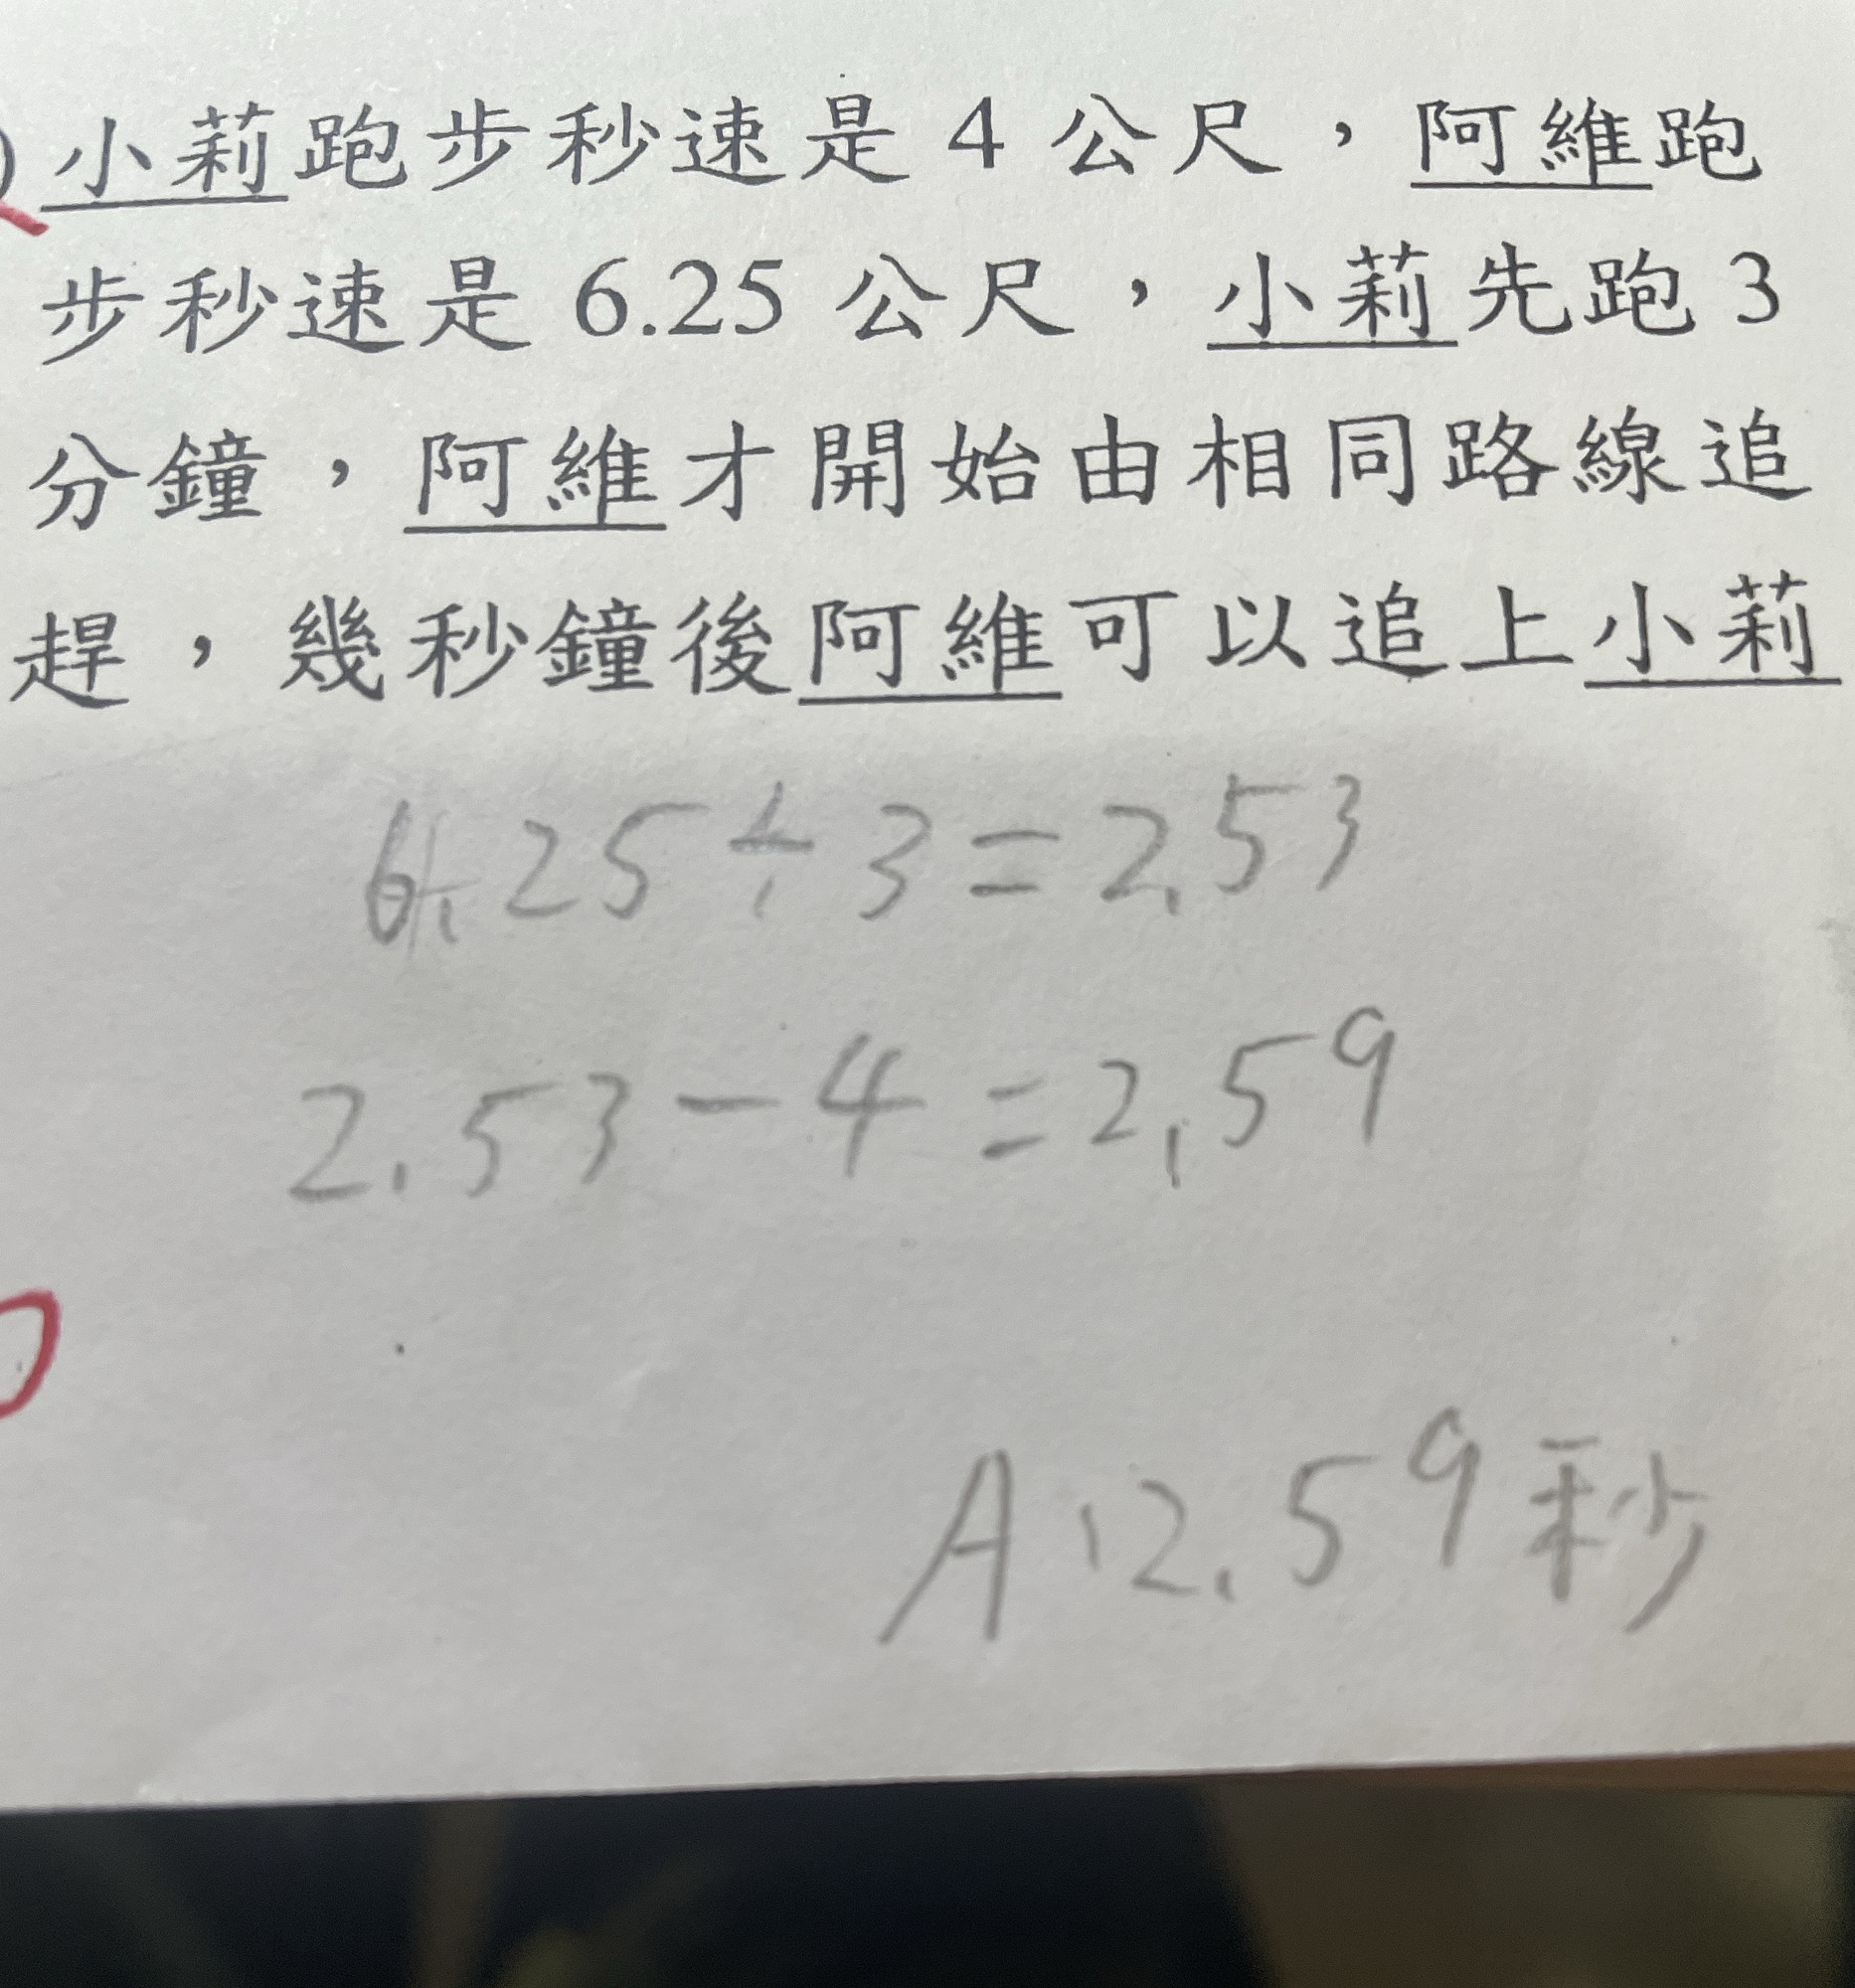 ) 小莉跑步秒速是 4 公尺，阿維跑
步秒速是 6.25 公尺，小莉先跑 3
分鐘，阿維才開始由相同路線追
趕，幾秒鐘後阿維可以追上小莉
6.25÷3=2.53
2.53-4=2.59
A:2.59秒